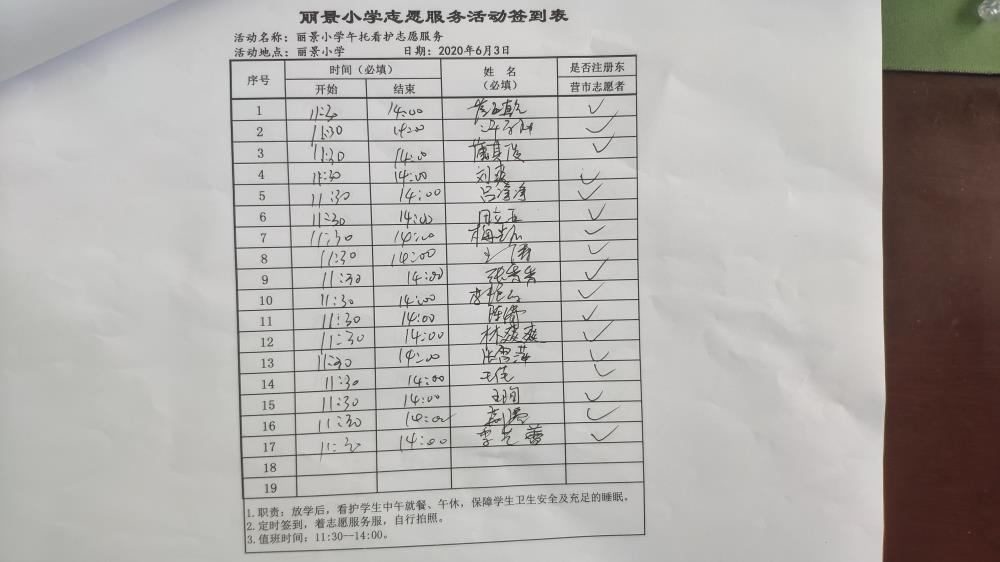 丽景小学志愿服务活动签到表
活动名称：丽景小学午托看护志愿服务
活动地点：丽景小学 日期：2020年6月3日
序号 时间（必填） 姓 名（必填） 是否注册东营市志愿者
开始 结束
1 11:30 14:00 ✓
2 11:30 14:00 ✓
3 11:30 14:00 ✓
4 11:30 14:00 刘爽 ✓
5 11:30 14:00 吕净净 ✓
6 11:30 14:00 ✓
7 11:30 14:00 ✓
8 11:30 14:00 ✓
9 11:30 14:00 张青青 ✓
10 11:30 14:00 ✓
11 11:30 14:00 ✓
12 11:30 14:00 林爽爽 ✓
13 11:30 14:00 ✓
14 11:30 14:00 王倩 ✓
15 11:30 14:00 王珣 ✓
16 11:30 14:00 ✓
17 11:30 14:00 ✓
18
19
1.职责：放学后，看护学生中午就餐、午休，保障学生卫生安全及充足的睡眠。
2.定时签到，着志愿服务服，自行拍照。
3.值班时间：11:30--14:00。